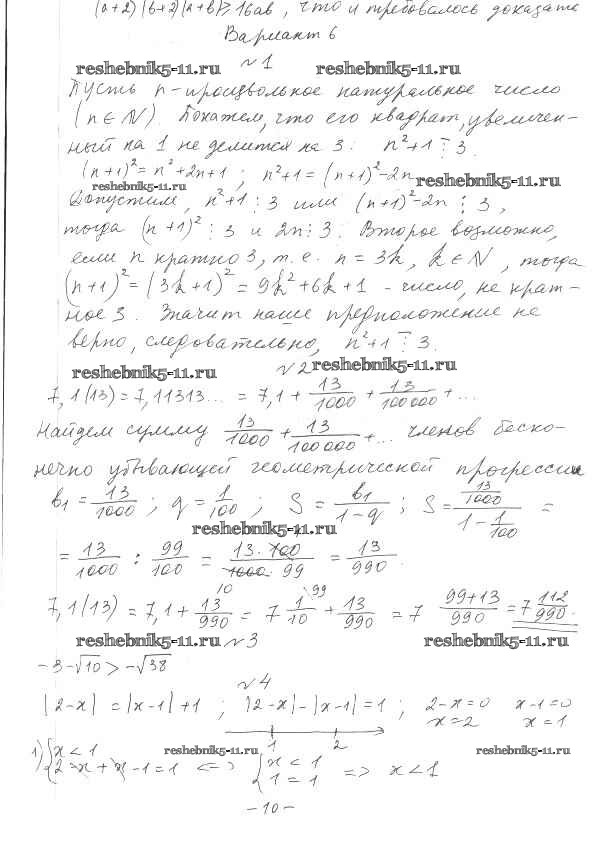 (a+2)(b+2)(a+b)≥16ab, что и требовалось доказать
Вариант 6
№1
reshebnik5-11.ru reshebnik5-11.ru
Пусть n - произвольное натуральное число
(n∈N). Покажем, что его квадрат, увеличен-
ный на 1 не делится на 3. n²+1 ⋮̅ 3.
(n+1)² = n²+2n+1; n²+1 = (n+1)²-2n
reshebnik5-11.ru reshebnik5-11.ru
Допустим, n²+1 ⋮ 3 или (n+1)²-2n ⋮ 3,
тогда (n+1)² ⋮ 3 и 2n ⋮ 3. Второе возможно,
если n кратно 3, т.е. n = 3k, k∈N, тогда
(n+1)² = (3k+1)² = 9k²+6k+1 - число, не крат-
ное 3. Значит наше предположение не
верно, следовательно, n²+1 ⋮̅ 3.
reshebnik5-11.ru №2 reshebnik5-11.ru
7,1(13) = 7,11313... = 7,1 + 13/1000 + 13/100000 + ...
Найдем сумму 13/1000 + 13/100000 + ... членов беско-
нечно убывающей геометрической прогрессии
b₁ = 13/1000; q = 1/100; S = b₁/(1-q); S = (13/1000)/(1-1/100) =
reshebnik5-11.ru
= 13/1000 : 99/100 = 13·100/1000·99 = 13/990.
10
7,1(13) = 7,1 + 13/990 = 7 1/10 \99 + 13/990 = 7 (99+13)/990 = 7 112/990.
reshebnik5-11.ru №3 reshebnik5-11.ru
-3-√10 > -√38
№4
|2-x| = |x-1|+1; |2-x|-|x-1|=1; 2-x=0 x-1=0
x=2 x=1
1 2
1) {x<1 reshebnik5-11.ru {x<1 reshebnik5-11.ru
{2-x+x-1=1 <=> {1=1 => x<1
-10-